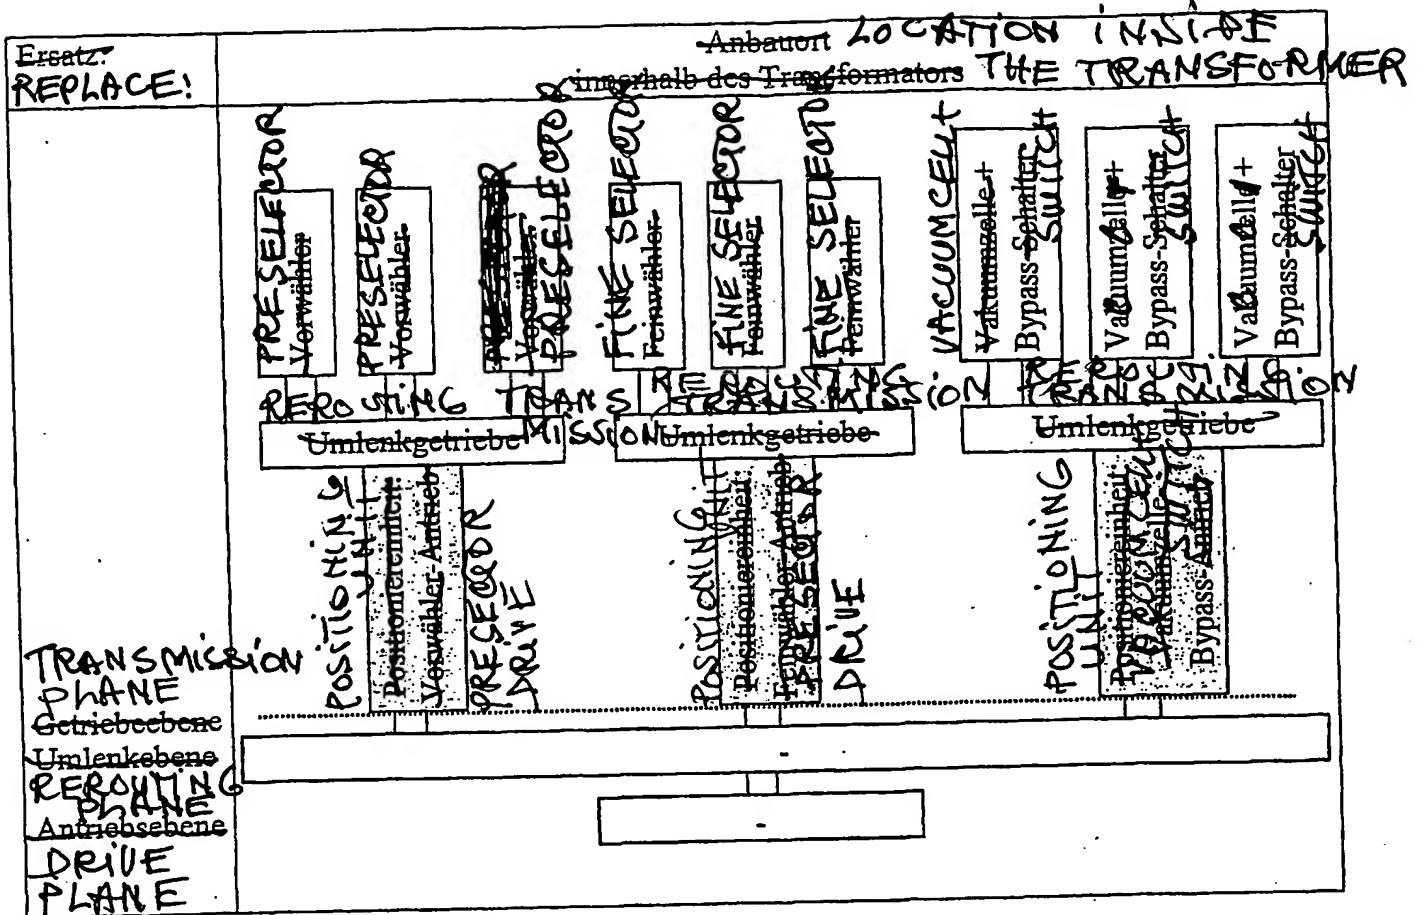 Ersatz:
REPLACE!
Anbauort LOCATION INSIDE
innerhalb des Transformators THE TRANSFORMER
PRESELECTOR
Vorwähler
PRESELECTOR
Vorwähler
Vorwähler
PRESELECTOR
FINE SELECTOR
Feinwähler
FINE SELECTOR
Feinwähler
FINE SELECTOR
Feinwähler
VACUUMCELL+
Vakuumzelle +
Bypass-Schalter
SWITCH
Vakuumzelle +
Bypass-Schalter
SWITCH
Vakuumzelle +
Bypass-Schalter
SWITCH
REROUTING TRANSMISSION
REROUTING
TRANSMISSION
REROUTING
TRANSMISSION
Umlenkgetriebe
Umlenkgetriebe
Umlenkgetriebe
POSITIONING
UNIT
Positioniereinheit:
Vorwähler-Antrieb
PRESEQOR
DRIVE
POSITIONING
UNIT
Positioniereinheit:
Feinwähler-Antrieb
PRESEQOR
DRIVE
POSITIONING
UNIT
Positioniereinheit:
VACUUM CELL+
Vakuumzelle
SWITCH
Bypass-Antrieb
TRANSMISSION
PLANE
Getriebeebene
Umlenkebene
REROUTING
PLANE
Antriebsebene
DRIVE
PLANE
-
-